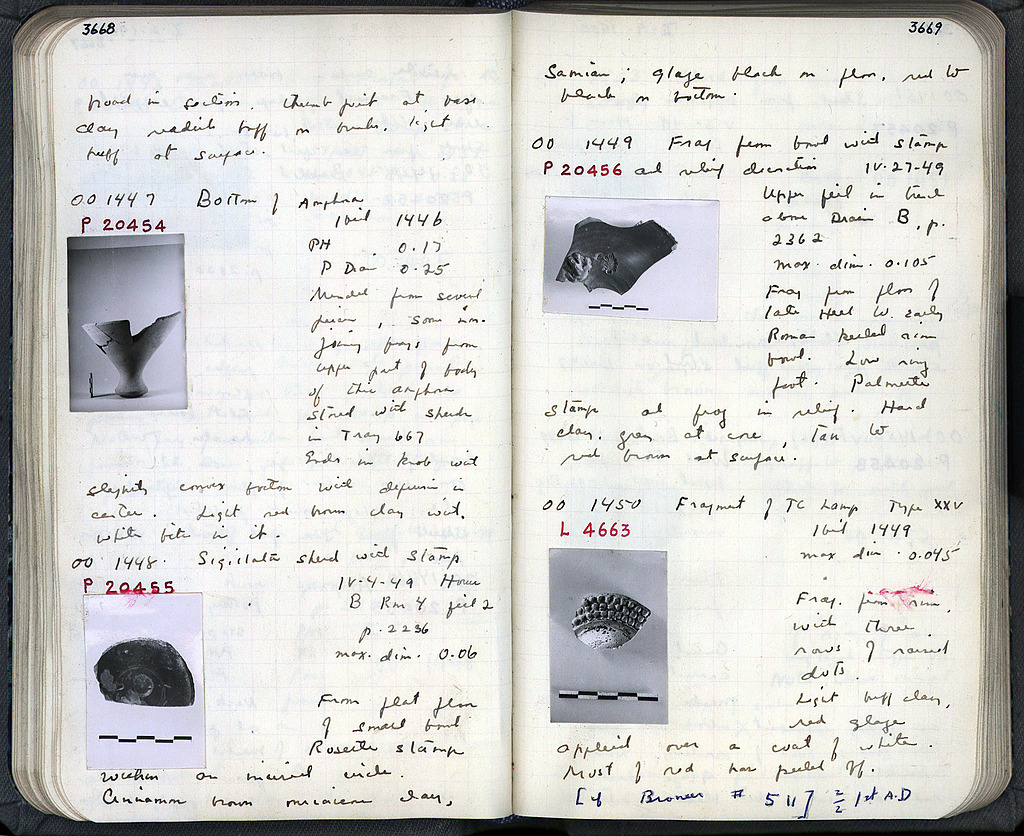 3668
broad in section, thumb print at base
clay reddish buff on break, light
buff at surface.
OO 1447 Bottom of Amphora
P 20454
ibid 1446
PH 0.17
P Diam 0.25
Mended from several
pieces, some non-
joining frags from
upper part of body
of this amphora
stored with sherds
in Tray 667
Ends in knob with
slightly convex bottom with depression in
center. Light red brown clay with
white bits in it.
OO 1448. Sigillata sherd with stamp
P 20455
IV-4-49 House
B Rm 4 fill 2
p. 2236
max. dim. 0.06
From flat floor
of small bowl
Rosette stamp
within an incised circle.
Cinnamon brown micaceous clay,
3669
Samian; glaze black on floor, red to
black on bottom.
OO 1449 Frag from bowl with stamp
P 20456 and relief decoration IV-27-49
Upper fill in
above Drain B, p.
2362
max. dim. 0.105
Frag from floor of
late Hell to early
Roman rim
bowl. Low ring
foot. Palmette
stamp and frog in relief. Hard
clay, grey at core, tan to
red brown at surface.
OO 1450 Fragment of TC Lamp Type XXV
L 4663
ibid 1449
max dim. 0.045
Frag. from rim,
with three
rows of raised
dots.
Light buff clay,
red glaze
applied over a coat of white.
Most of red has peeled off.
[cf Broneer # 511] 2/2 1st A.D